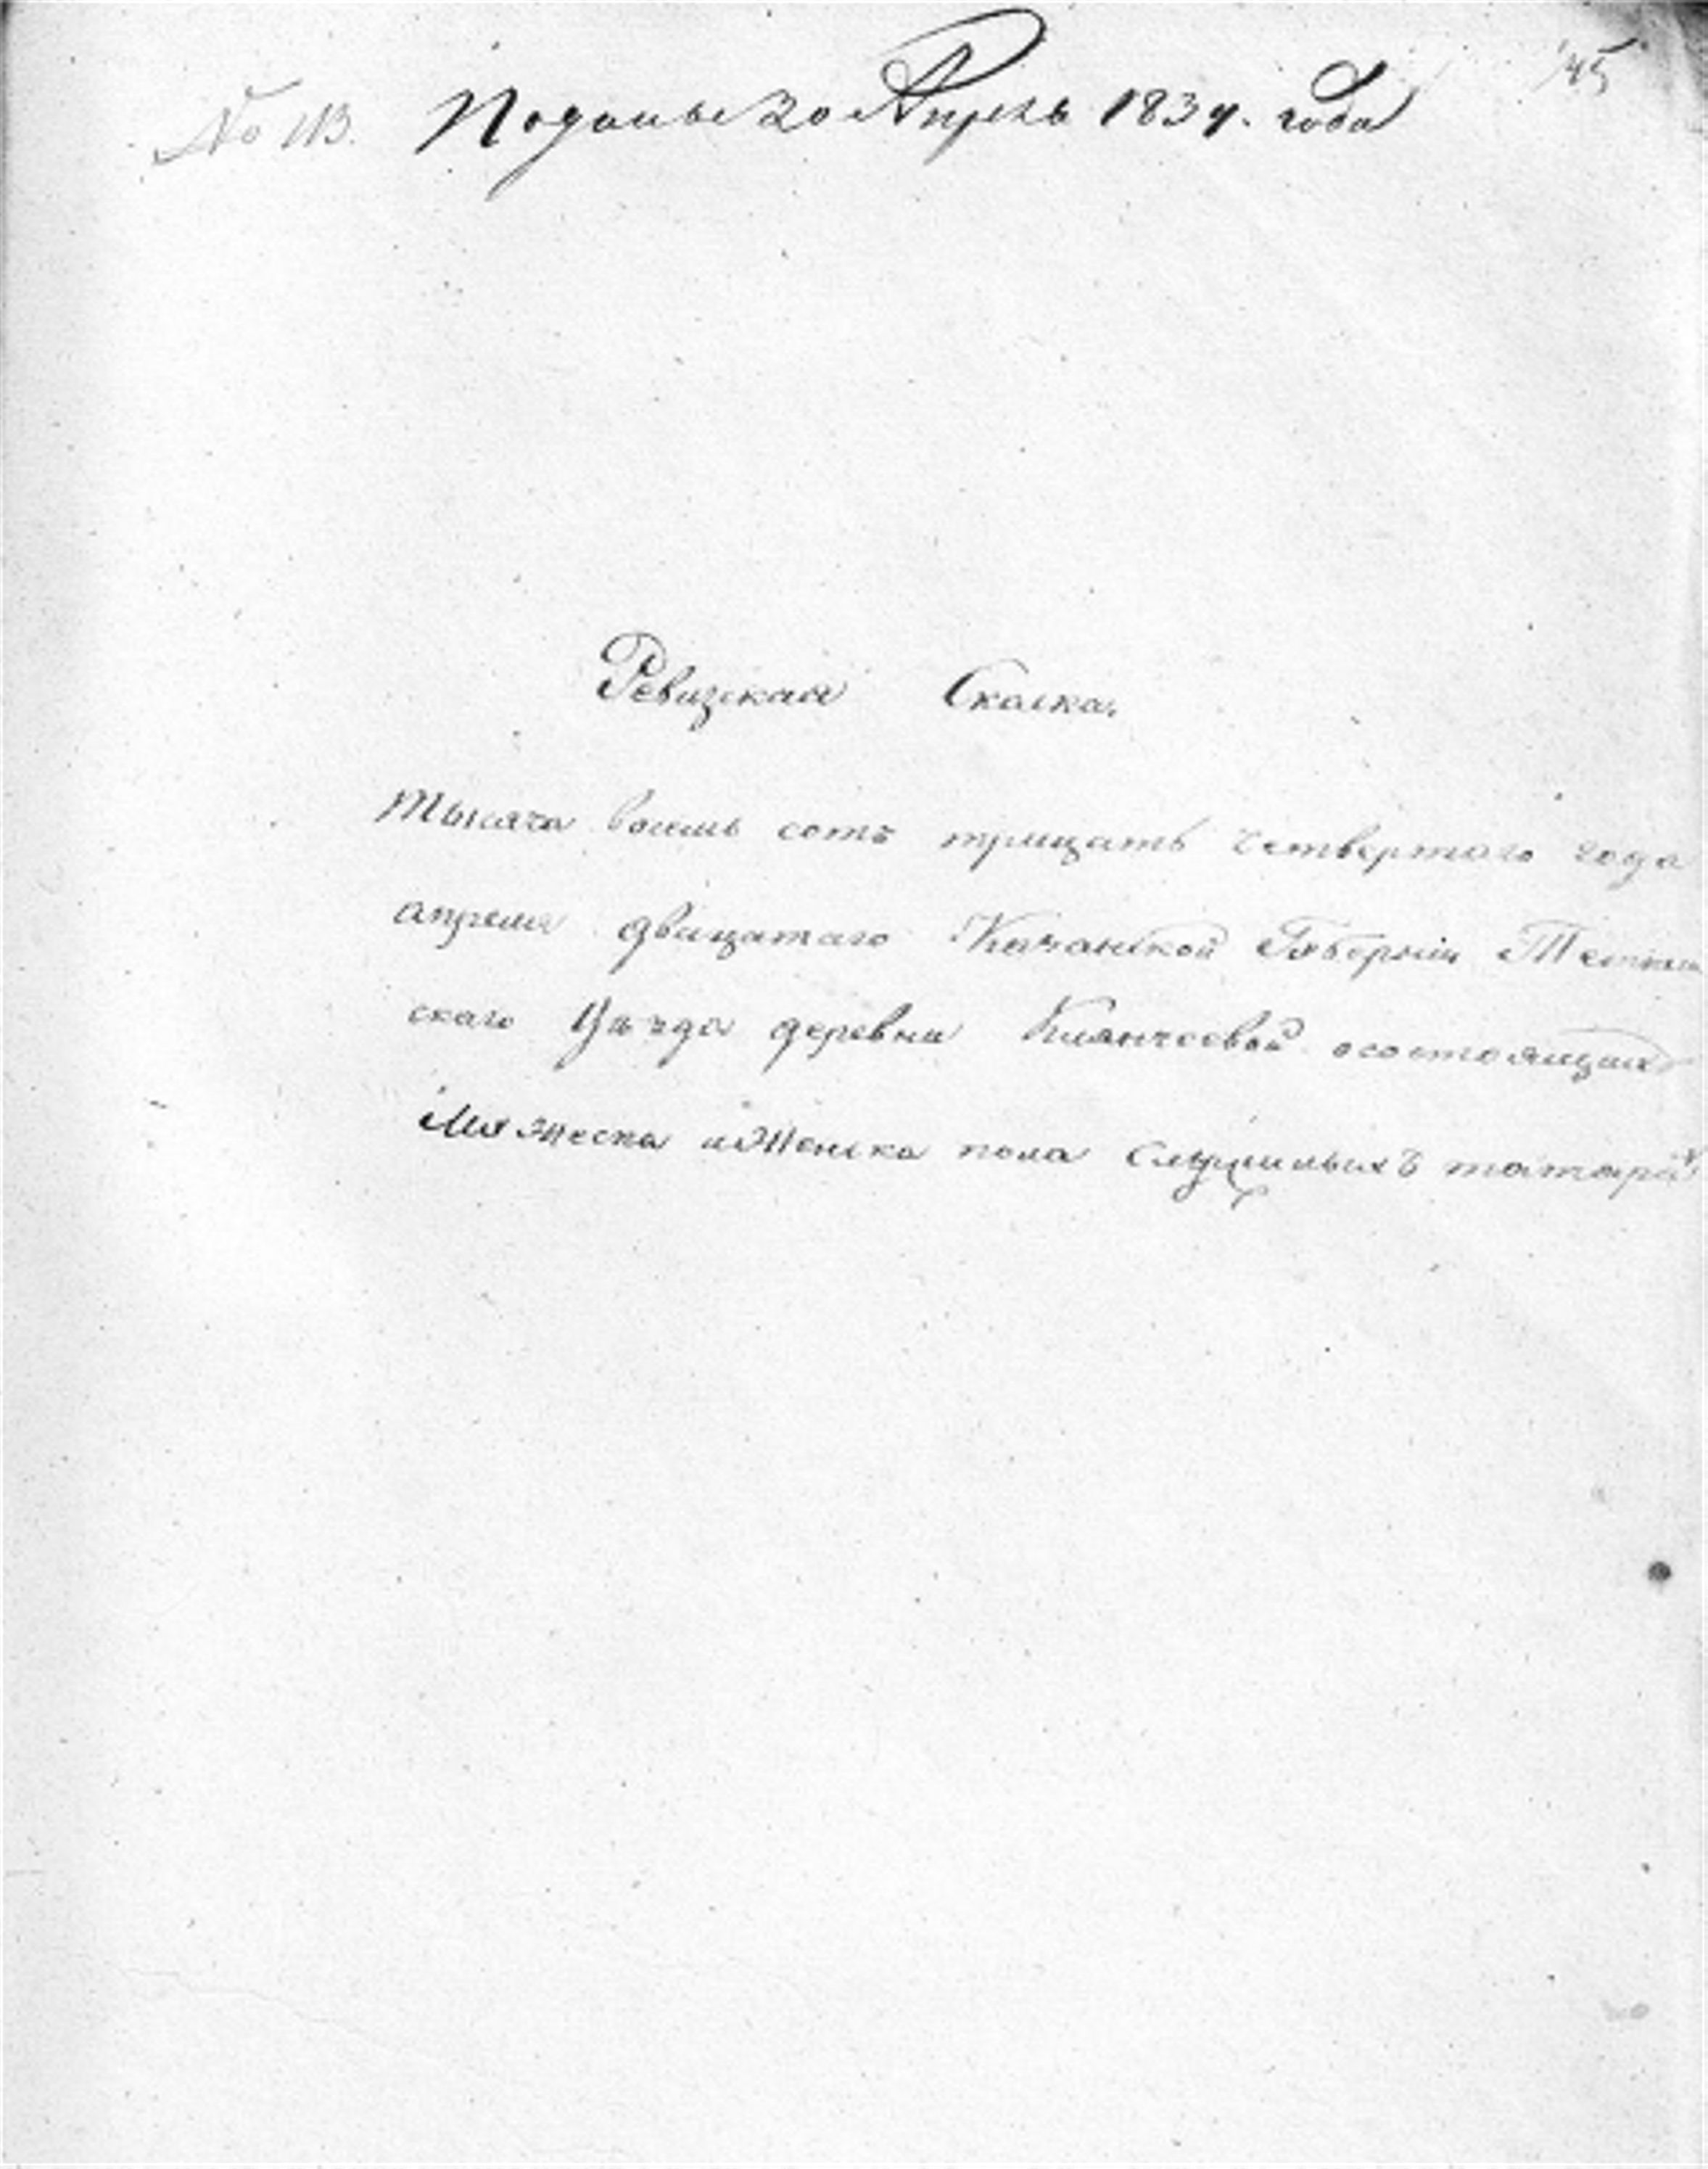 145
№ 113. Поданы 20 Апреля 1834. года
Ревизская Скаска.
Тысяча восемь сотъ трицать четвертаго года
апреля двацатаго Казанской Губернии Тетюш
скаго Уезда деревни Киянчеевой о состоящихъ
Мужеска и Женска пола Служилыхъ татаръ